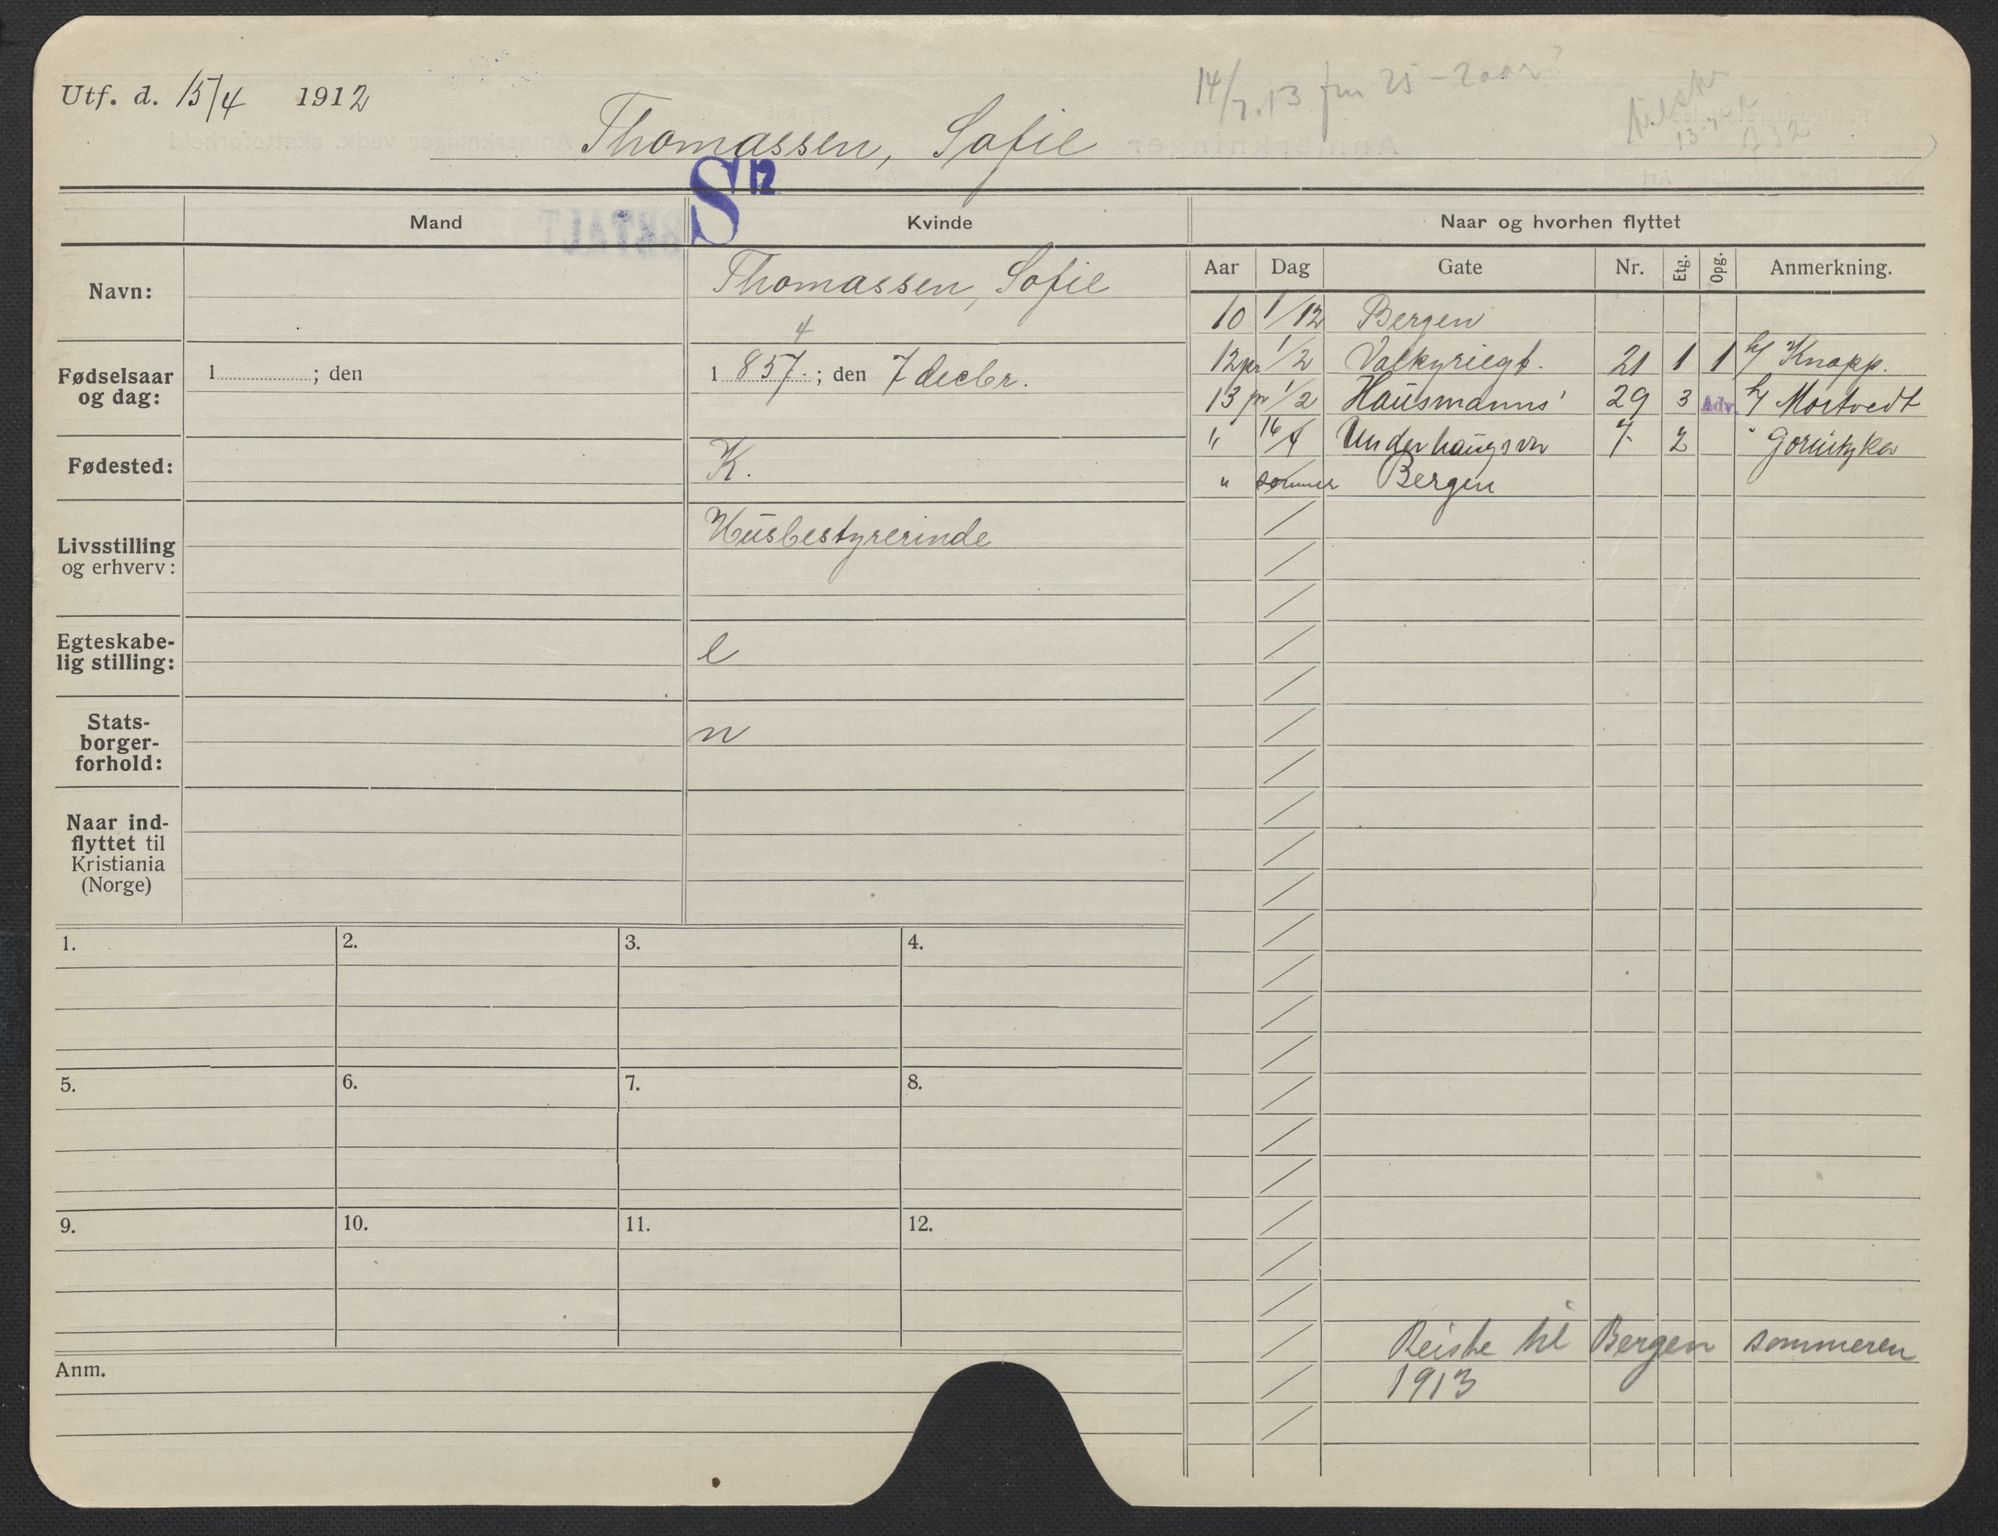 Utf. d. 15/4 1912
Thomassen, Sofie
S 12
Mand
Kvinde
Naar og hvorhen flyttet
Navn:
Thomassen, Sofie
Fødselsaar og dag:
1 ; den
4
1 857. ; den 7 decbr.
Fødested:
K.
Livsstilling og erhverv:
Husbestyrerinde
Egteskabe-
lig stilling:
e
Stats-
borger-
forhold:
n
Naar ind-
flyttet til
Kristiania
(Norge)
Aar Dag Gate Nr. Etg. Opg. Anmerkning.
10 1/12 Bergen
12 pr 1/2 Valkyriegt. 21 1 1 h/ Knapp.
13 pr 1/2 Hausmanns' 29 3 Adv. h/ Mortvedt
" 16/4 Underhaugsvn 7 2 "
" sommer Bergen
Reiste til Bergen sommeren
1913
1. 2. 3. 4.
5. 6. 7. 8.
9. 10. 11. 12.
Anm.